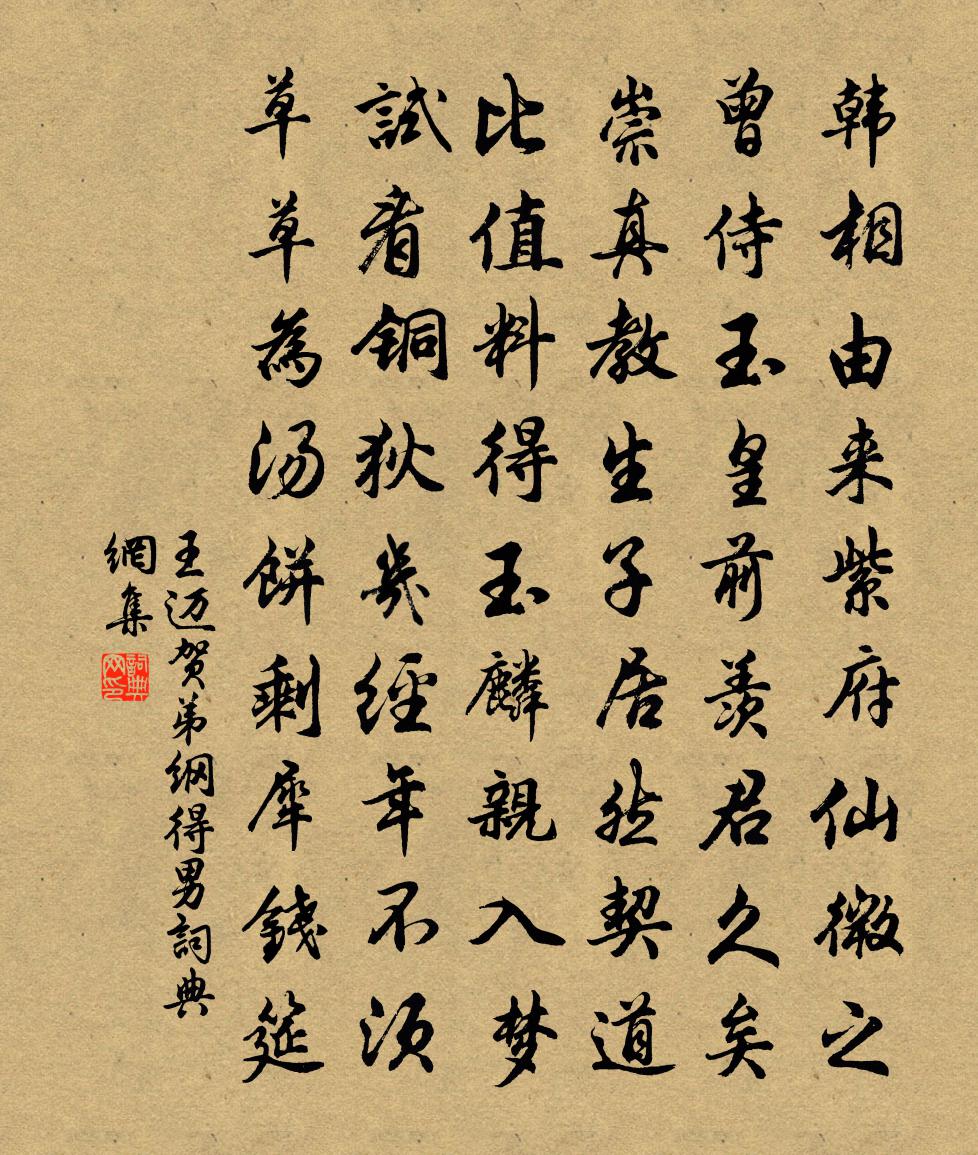 韩相由来紫府仙微之
曾侍玉皇前羡君久矣
崇真教生子居然契道
比值料得玉麟親入梦
試看銅狄幾經年不须
草草為汤餅剩犀錢筵
王迈贺弟纲得男詞典
網集
詞典网印